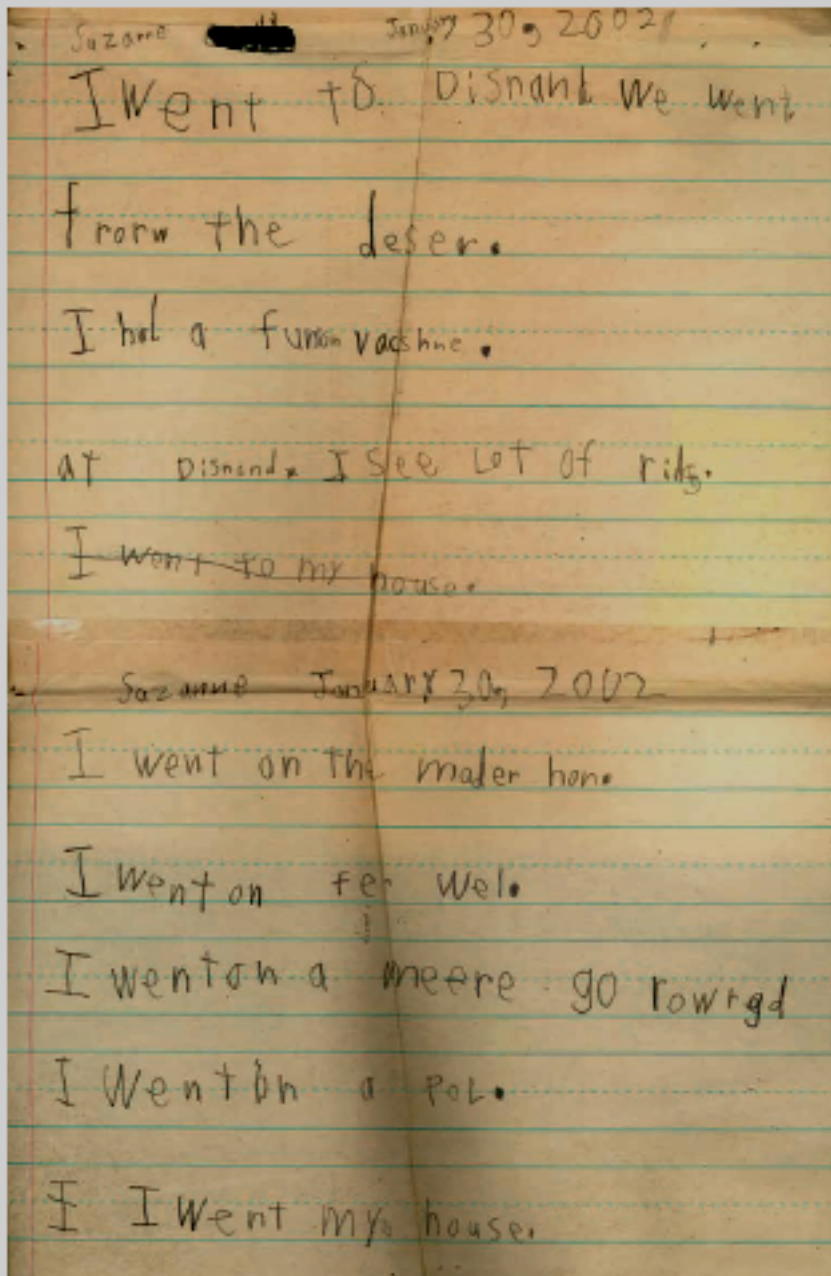 Suzanne January 30, 2002
I Went to Disnand We went
from the deser.
I had a fun vacshne.
at Disnand. I see Lot of rids.
I went to my house.
Suzanne January 30, 2002
I went on the mader hon.
I Went on fer wel.
I went on a meere go rowrgd
I Went on a Pol.
I I Went my house.